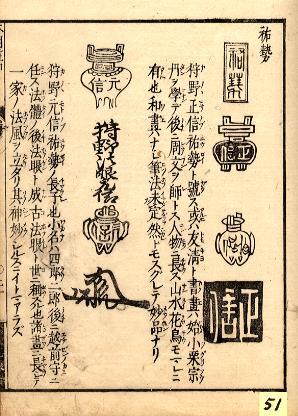 祐勢
祐勢
正信
狩野正信祐勢ト號ス或ハ友清ト書畫ハ始小栗宗
丹ヲ學テ後周文ヲ師トス人物ニ長ス山水花鳥モマレニ
有也和畫ナシ筆法未定然トモスクレテ妙品ナリ
元信
狩野法眼元信
狩野元信祐勢ノ長子也小名ハ四郎二郎後ニ越前守ニ
任ス法體ノ後法眼ト成古法眼ト世ニ称ス也諸畫ニ長シテ
一家ノ法風ヲ立タリ其神妙シルスニイトマアラズ
51